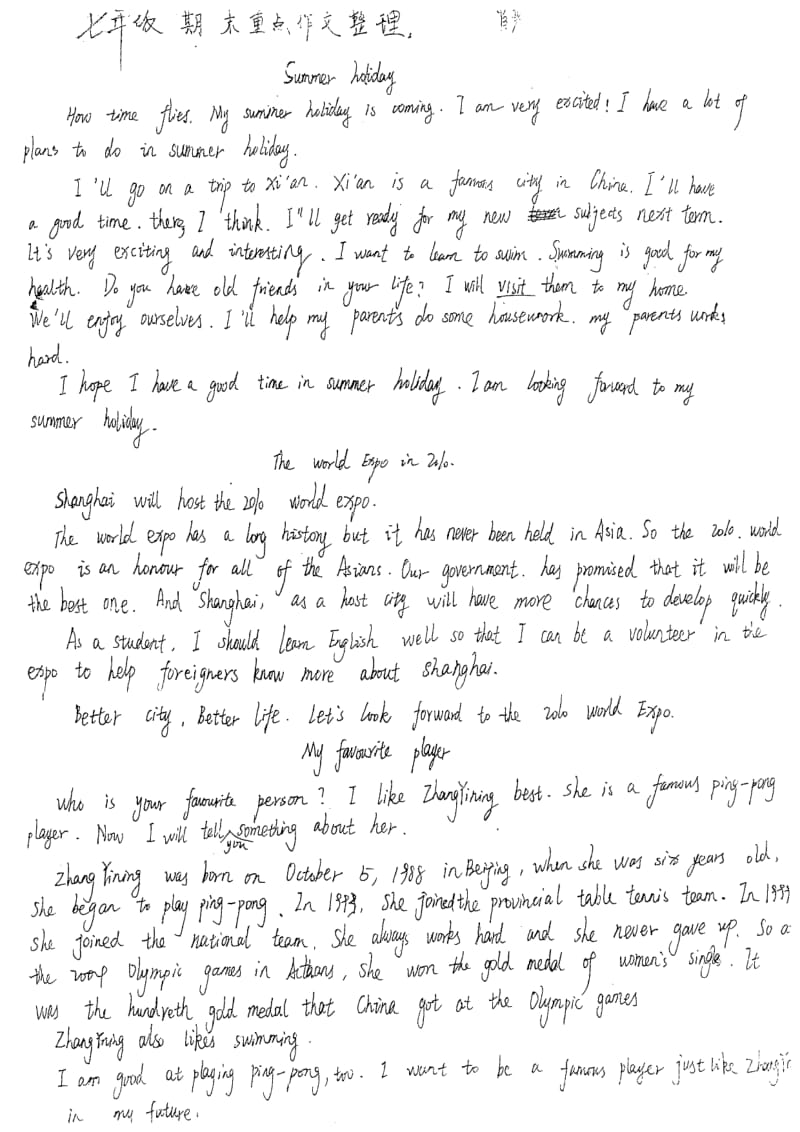 七年级 期末重点作文整理.
Summer holiday
How time flies. My summer holiday is coming. I am very excited! I have a lot of
plans to do in summer holiday.
I'll go on a trip to Xi'an. Xi'an is a famous city in China. I'll have
a good time. there, I think. I''ll get ready for my new subjects next term.
It's very exciting and interesting. I want to learn to swim. Swimming is good for my
health. Do you have old friends in your life? I will visit them to my home.
We'll enjoy ourselves. I'll help my parents do some housework. my parents works
hard.
I hope I have a good time in summer holiday. I am looking forward to my
summer holiday.
The world Expo in 2010.
Shanghai will host the 2010 world expo.
The world expo has a long history but it has never been held in Asia. So the 2010. world
expo is an honour for all of the Asians. Our government. has promised that it will be
the best one. And Shanghai, as a host city will have more chances to develop quickly.
As a student, I should learn English well so that I can be a volunteer in the
expo to help foreigners know more about shanghai.
Better city, Better life. Let's look forward to the 2010 world Expo.
My favourite player
who is your favourite person? I like ZhangYining best. she is a famous ping-pong
player. Now I will tell you something about her.
Zhang Yining was born on October 5, 1988 in Beijing, when she was six years old,
she began to play ping-pong. In 1993, she joined the provincial table tennis team. In
she joined the national team. She always works hard and she never gave up. So
the Olympic games in she won the gold medal of women's single. It
was the hundreth gold medal that China got at the Olympic games
ZhangYining also likes swimming.
I am good at playing ping-pong, too. I want to be a famous player just like
in my future.